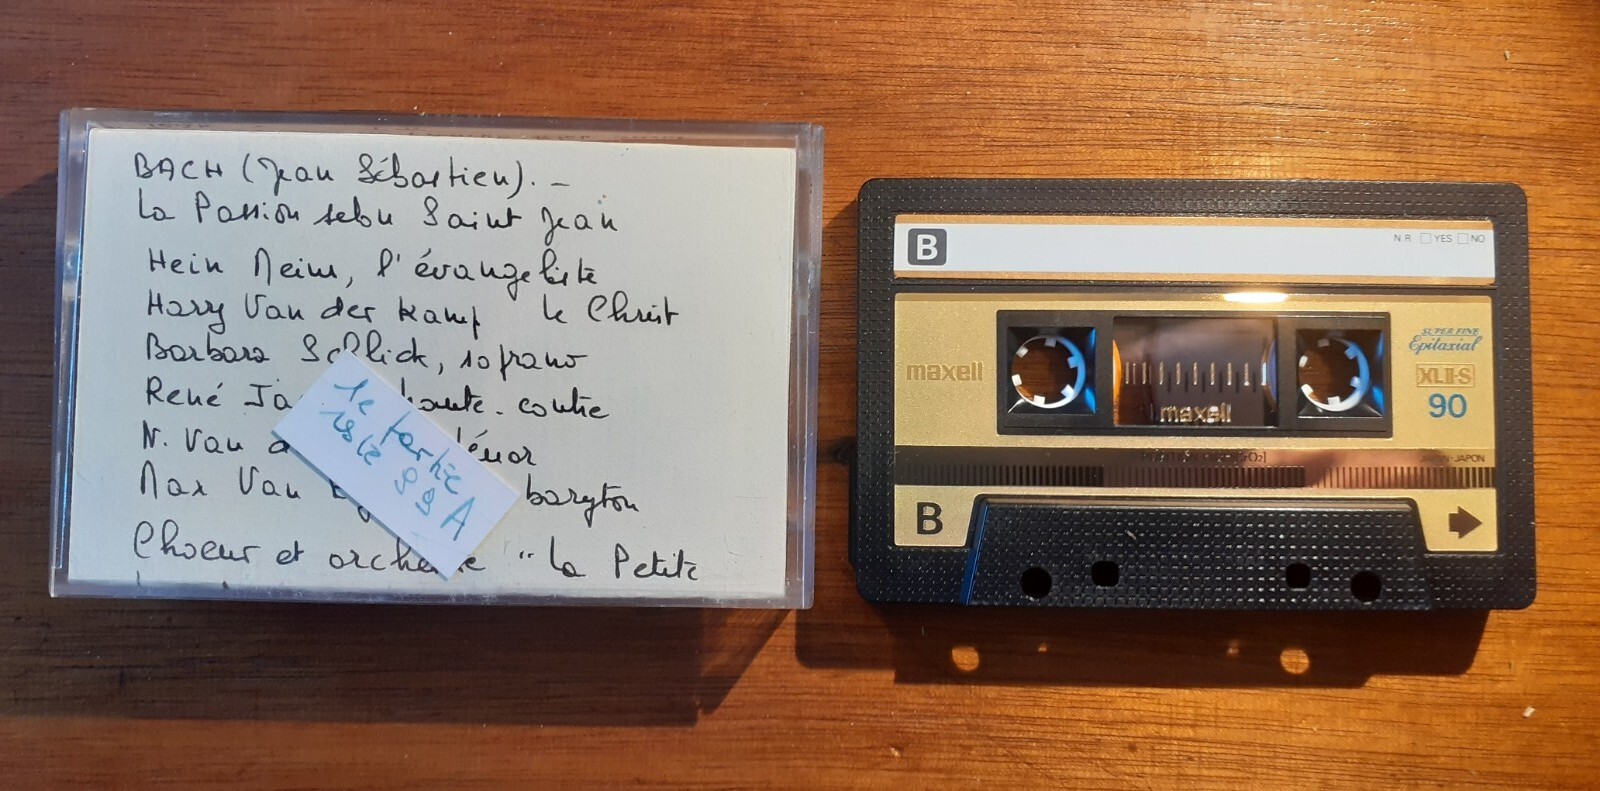 BACH (Jean Sébastien). –
La Passion selon Saint Jean
Hein Meins, l'évangeliste
Harry Van der Kamp le Christ
Barbara Schlick, soprano
René Ja haute-contre
N. Van d ténor
Max Van baryton
Choeur et orche e "La Petite
1e partie
reste 99 A
B
N.R. YES NO
maxell
maxell
SUPER FINE
Epitaxial
XLII-S
90
JAPAN•JAPON
B